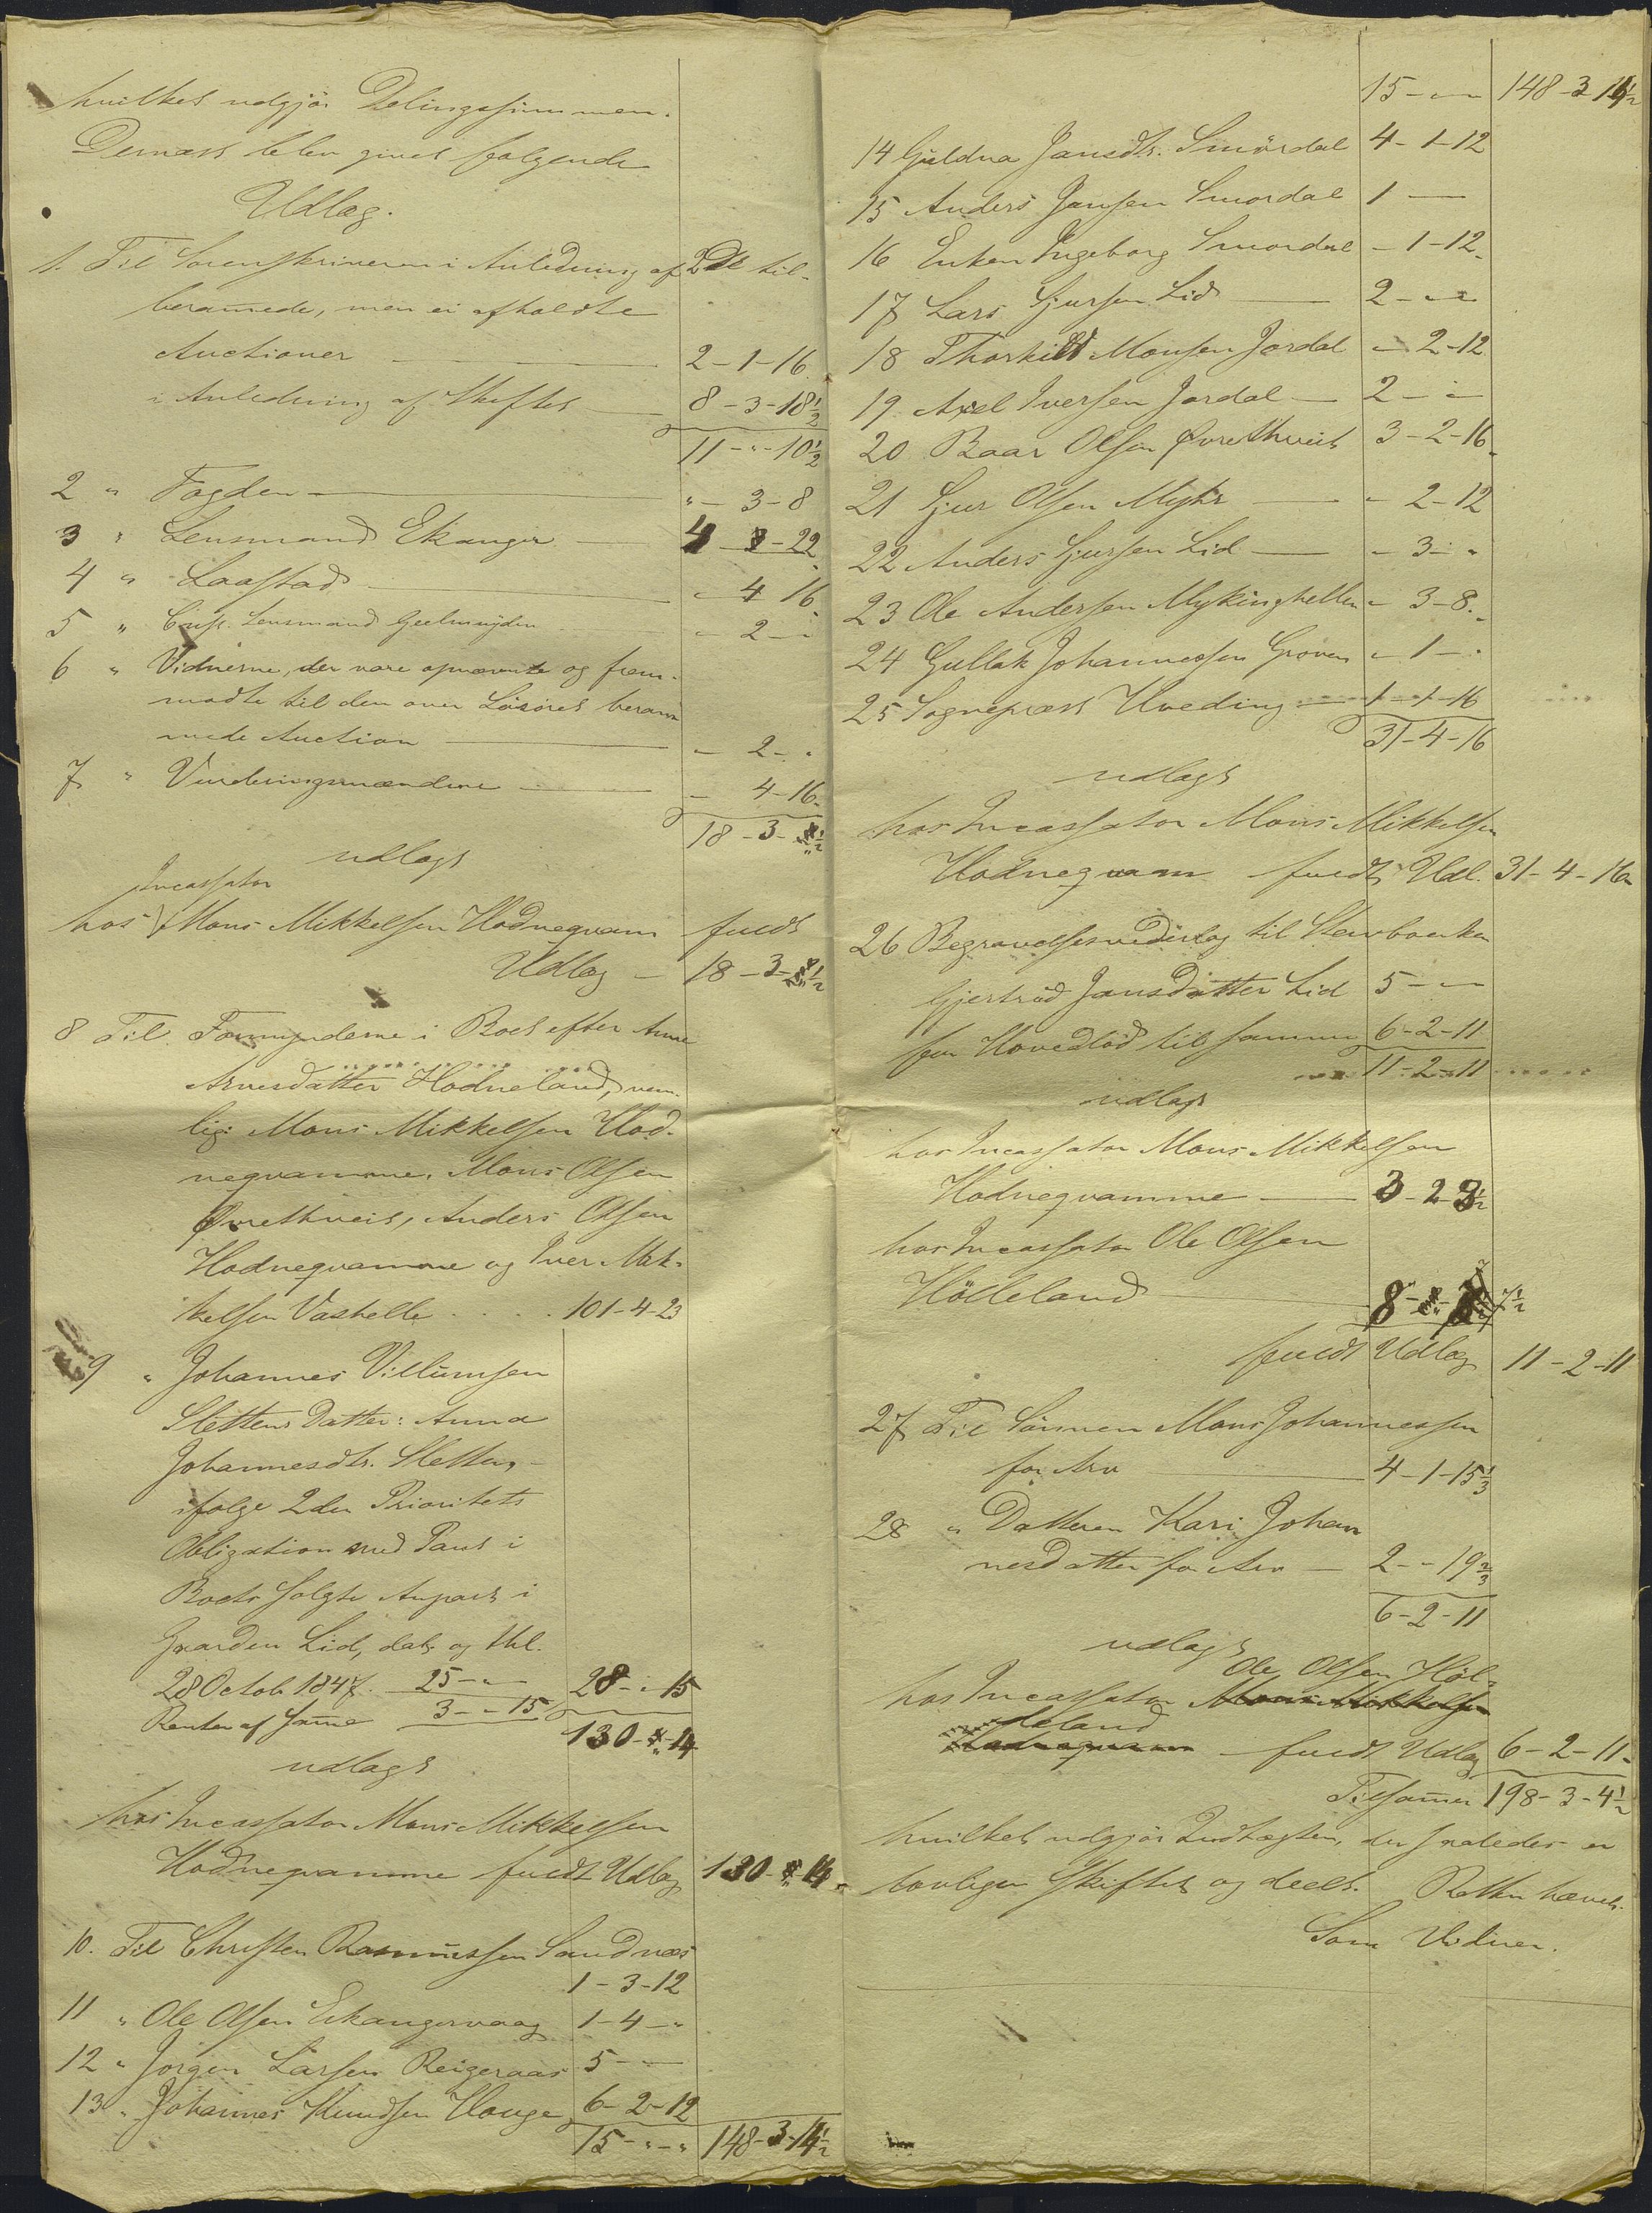 hvilket udgjør Delingssummen.
Dernæst blev givet følgende
Udlæg.
1. Til Sorenskriveren i Anledning af 2de til-
beramede, men ei afholdte
Auctioner 2-1-16
i Anledning af Skiftet 8-3-18½
11-"-10½
2 " Fogden "-3-8
3 " Lensmand Ekanger 4-3-22
4 " Laastad "-4-16
5 " Const. Lensmand Geelmuyden "-2-"
6 " Vidnerne, der vare opnævnte og frem-
mødte til den over Løsøret beram
mede Auction "-2-"
7 " Vurderingsmændene "-4-16
18-3-"½
udlagt
Incassator
hos Mons Mikkelsen Hodneqvam fuldt
Udlæg 18-3-"½
8 Til Formynderne i Boet efter Anne
Arnesdatter Hodneland, nem-
lig: Mons Mikkelsen Hod-
neqvamme, Mons Olsen
Qvrethveit, Anders Olsen
Hodneqvamme og Iver Mik-
kelsen Vashelle 101-4-23
9 " Johannes Villumsen
Slettens Datter: Anna
Johannesdtr. Sletten,
ifølge 2den Prioritets
Obligation med Pant i
Boets solgte Anpart i
Gaarden Lid, dat. og thl.
28 Octob. 1847. 25-"-" 28-"-15
Renter af samme 3-"-15
130-"-14
udlagt
hos Incassator Mons Mikkelsen
Hodneqvamme fuldt Udlæg 130-"-14
10. Til Christen Rasmussen Sandnæs
1-3-12
11 " Ole Olsen Eikangervaag 1-4-"
12 " Jørgen Larsen Reigeraas 5-"-"
13 " Johannes Knudsen Houge 6-2-12
15-"-" 148-3-14½
15-"-" 148-3-14½
14 Guldva Jansdtr. Smørdal 4-1-12
15 Anders Jansen Smørdal 1 -
16 Enken Ingeborg Smørdal "-1-12
17 Lars Sjursen Lid 2-"-"
18 Thorkild Monsen Jordal "-2-12
19 Axel Iversen Jordal 2-"-"
20 Baar Olsen Qvrethveit 3-2-16
21 Sjur Olsen Myhr "-2-12
22 Anders Sjursen Lid "-3-"
23 Ole Andersen Mykinghellen "-3-8
24 Gullak Johannessen Groven "-1-"
25 Sognepræst Uveding 1-1-16
31-4-16
udlagt
hos Incassator Mons Mikkelsen
Hodneqvam fuldt Udl. 31-4-16
26 Begravelsesvederlag til Stervboenken
Gjertrud Jansdatter Lid 5-"-"
for Hovedlod til samme 6-2-11
11-2-11
udlagt
hos Incassator Mons Mikkelsen
Hodneqvamme 3-2-3½
hos Incassator Ole Olsen
Hölleland 8-"-7½
fuldt Udlæg 11-2-11
27 Til Sønnen Mons Johannessen
for Arv 4-1-15⅓
28 " Datteren Kari Johan
nesdatter for Arv 2-"-19⅔
6-2-11
udlagt
Ole Olsen Höl-
hos Incassator Mons Mikkelsen
leland
Hodneqvam fuldt Udlæg 6-2-11
Tilsamen 198-3-4½
hvilket udgjør Indtægten, der saaledes er
lovligen skiftet og deelt. Retten hævet.
Som Vidner.